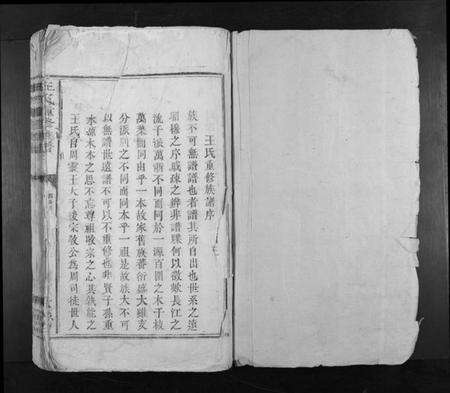 王氏重修族譜序
族不可無譜也譜者譜其所自出也世系之遠
昭穆之序戚疎之辨非譜牒何以徵歟長江之
流千派萬
不同而同於一源百圍之木千枝
萬葉
同而由乎一本故家舊族蕃衍盛大雖支
分派別之不同而同本乎一祖是故族大不可
以無譜世遠譜不可以不重修也非賢子孫重
本
木本之思不忘尊祖敬宗之心其孰能之
王氏自周靈王太子晉宗敬公為周司徒世人
王氏重修族譜